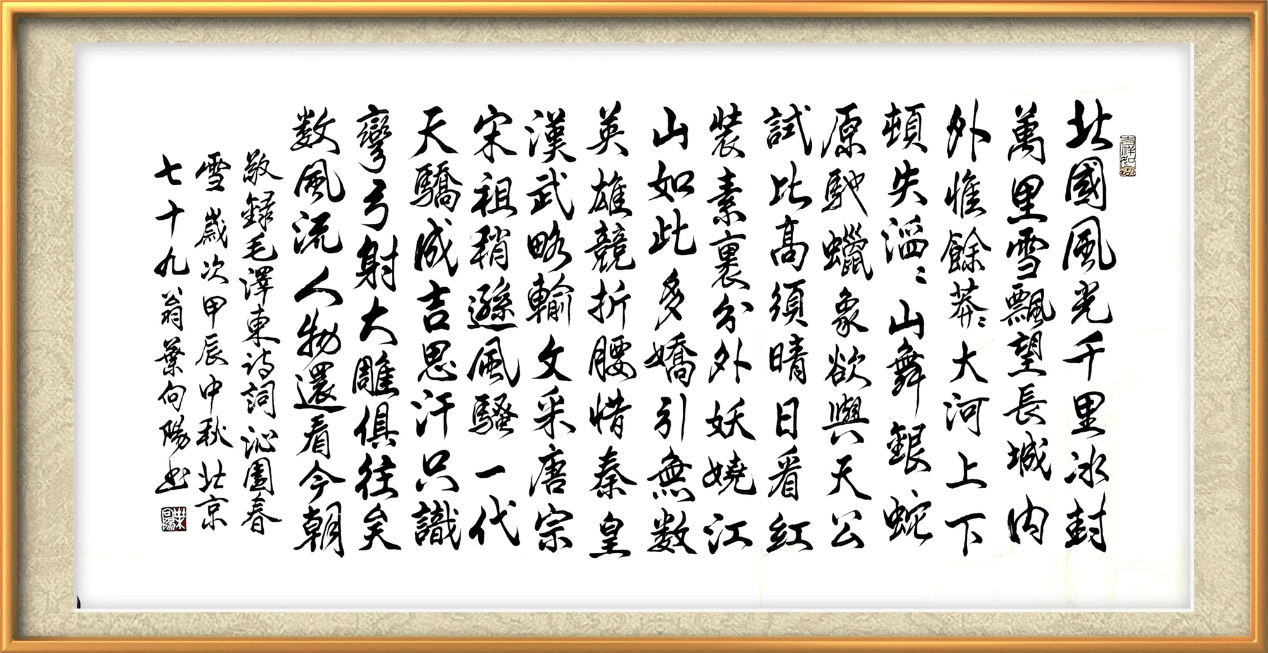 北國風光千里冰封
萬里雪飄望長城内
外惟餘莽〻大河上下
頓失滔〻山舞銀蛇
原馳蠟象欲與天公
試比高須晴日看紅
裝素裹分外妖嬈江
山如此多嬌引無数
英雄競折腰惜秦皇
漢武略輸文采唐宗
宋祖稍遜風騷一代
天驕成吉思汗只識
彎弓射大雕俱往矣
数風流人物還看今朝
敬録毛澤東詩詞沁園春
雪歲次甲辰中秋北京
七十九翁葉向陽书